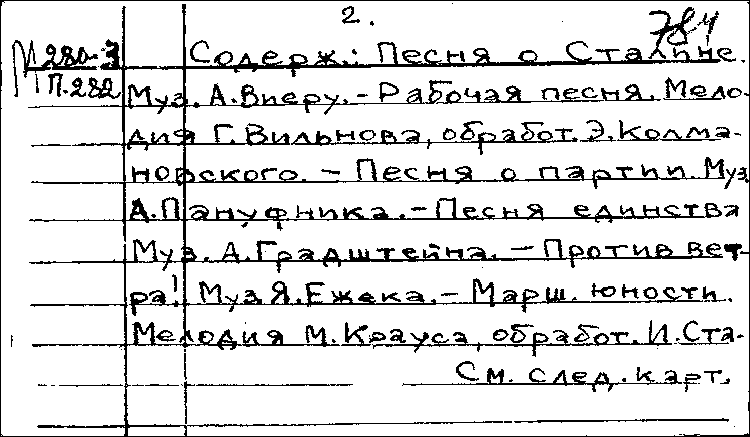 2.
784
М 280-3 Содерж.: Песня о Сталине.
П.282 Муз. А.Виеру. – Рабочая песня. Мело-
дия Г. Вильнова, обработ. Э. Колма-
новского. – Песня о партии. Муз.
А. Пануфника. – Песня единства
Муз. А. Градштейна. – Против вет-
ра! Муз. Я. Ежека. – Марш юности.
Мелодия М. Крауса, обработ. И. Ста-
См. след. карт.